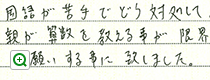 国語が苦手でどう対処して
親が算数を教える事が限界
願いする事に致しました。